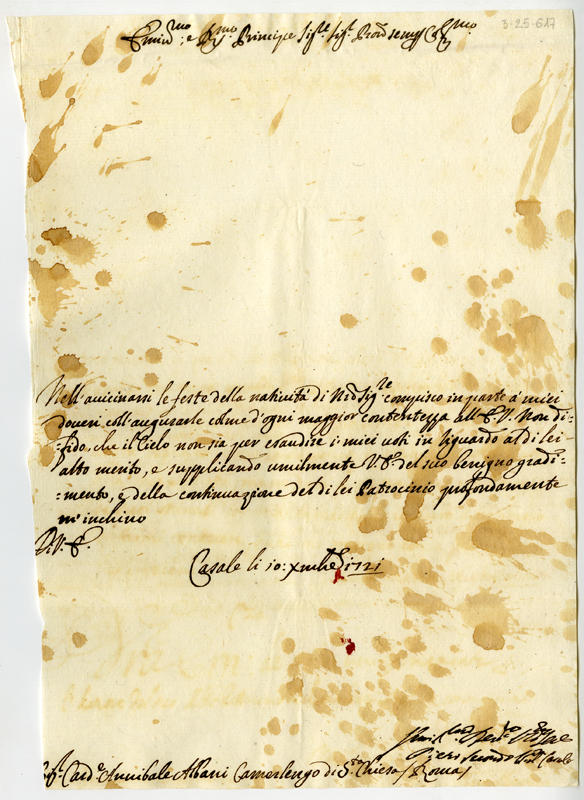 3-25-617
Emin.mo e Rmo. Principe Sig.re Sig.r Pron
Nell'avicinarsi le feste della natività di Nro Sig.re compisco in parte a' miei
doveri coll'augurarle colme d'ogni maggior contentezza all'E.V. Non di:
:fido, che il Cielo non sia per esaudire i miei voti in riguardo al di lei
alto merito, e supplicando umilmente V.E. del suo benigno gradi:
:mento, e della continuazione del di lei Patrocinio profondamente
m'inchino
Di V. E.
Casale li 10: xmbre 1721
Card.e Annibale Albani Camerlengo di S.ta Chiesa / Roma /